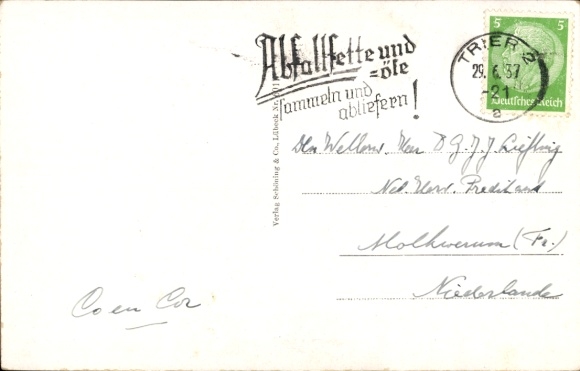 Abfallfette und
=öle
sammeln und
abliefern!
TRIER 2
29.6.37
-21
a
5 5
Deutsches Reich
Verlag Schöning & Co., Lübeck Nr.
Den Wellerw. Heer D G. J. J. Liefting
Ned. Herv. Predikant
Molkwerum (Fr.)
Niederlande
Co en Cor